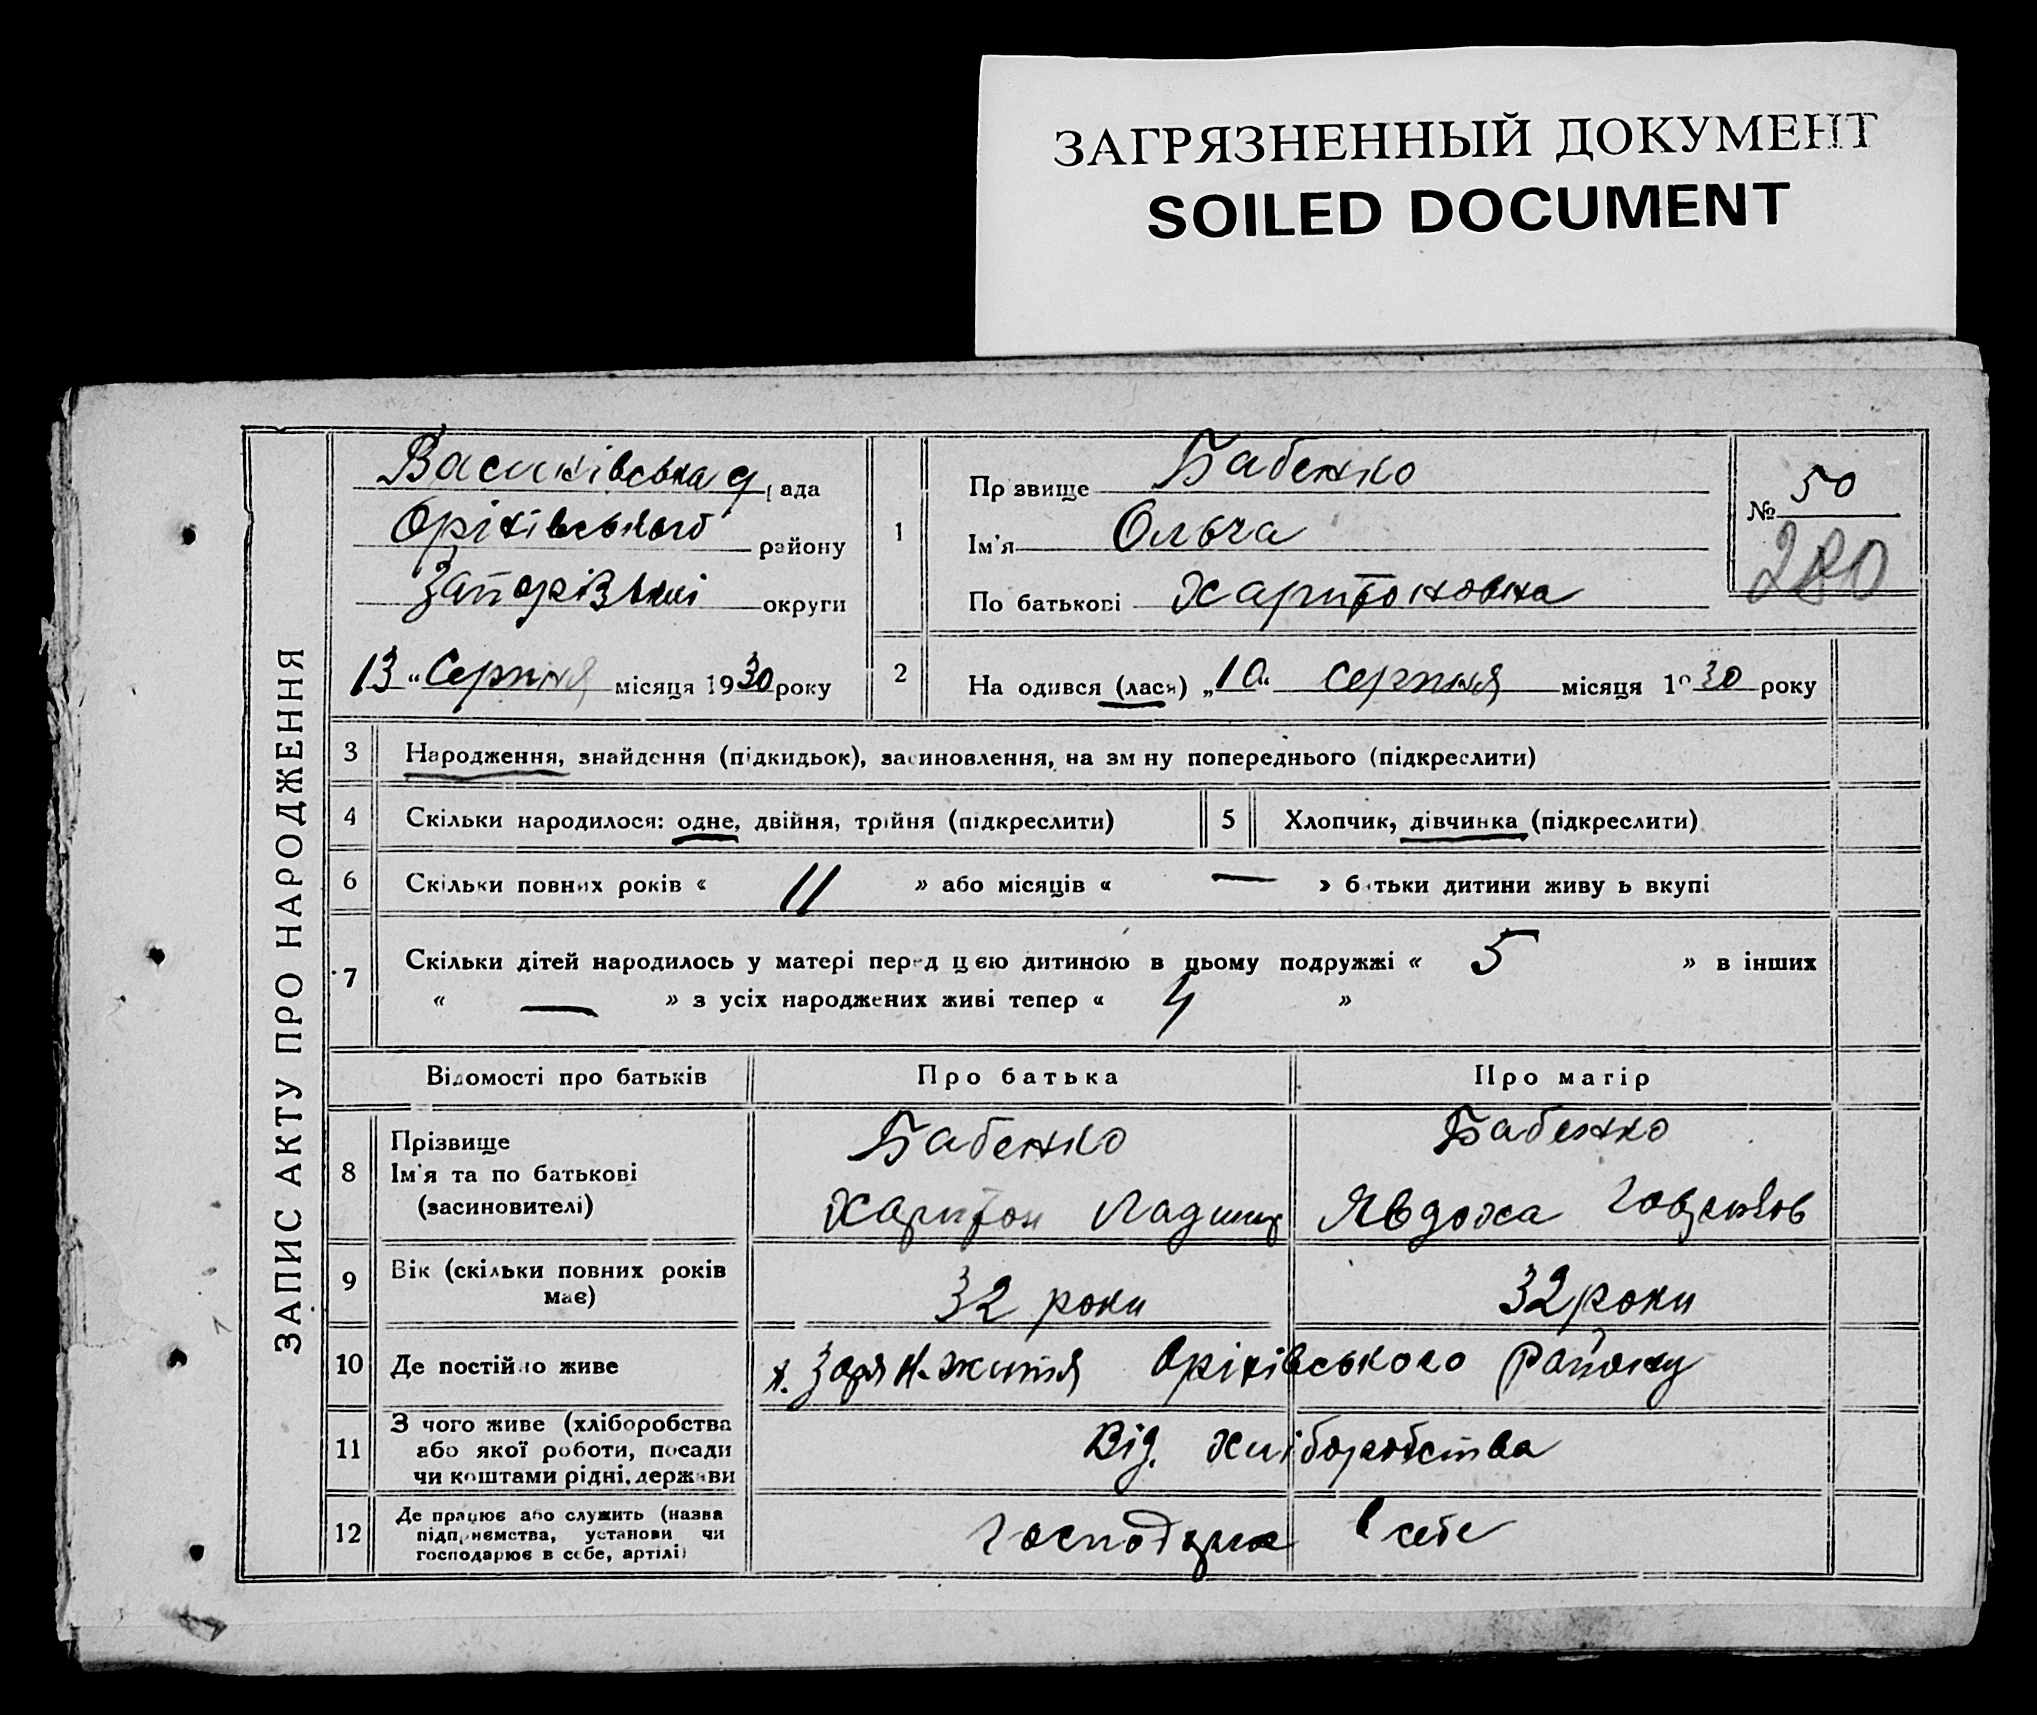 ЗАГРЯЗНЕННЫЙ ДОКУМЕНТ
SOILED DOCUMENT
ЗАПИС АКТУ ПРО НАРОДЖЕННЯ
рада
Оріхівського району
Запорізької округи
13 „ Серпня місяця 1930 року
1
Прізвище Бабенко
Ім'я Ольга
По батькові Харитоновна
№ 50
280
2
На одився (лася) „10 серпня місяця 1930 року
3 Народження, знайдення (підкидьок), засиновлення, на зміну попереднього (підкреслити)
4 Скільки народилося: одне, двійня, трійня (підкреслити) 5 Хлопчик, дівчинка (підкреслити)
6 Скільки повних років « 11 » або місяців « — » батьки дитини живуть вкупі
7 Скільки дітей народилось у матері перед цією дитиною в цьому подружжі « 5 » в інших
« — » з усіх народжених живі тепер « 4 »
Відомості про батьків Про батька Про матір
8 Прізвище Бабенко Бабенко
Ім'я та по батькові Харитон Явдоха
(засиновителі)
9 Вік (скільки повних років має) 32 роки 32 роки
10 Де постійно живе х. Заря Н.-Життя Оріхівського Району
11 З чого живе (хліборобства
або якої роботи, посади
чи коштами рідні, держави
Від. хліборобства
12 Де працює або служить (назва
підприємства, установи чи
господарює в себе, артілі)
Господарює в себе